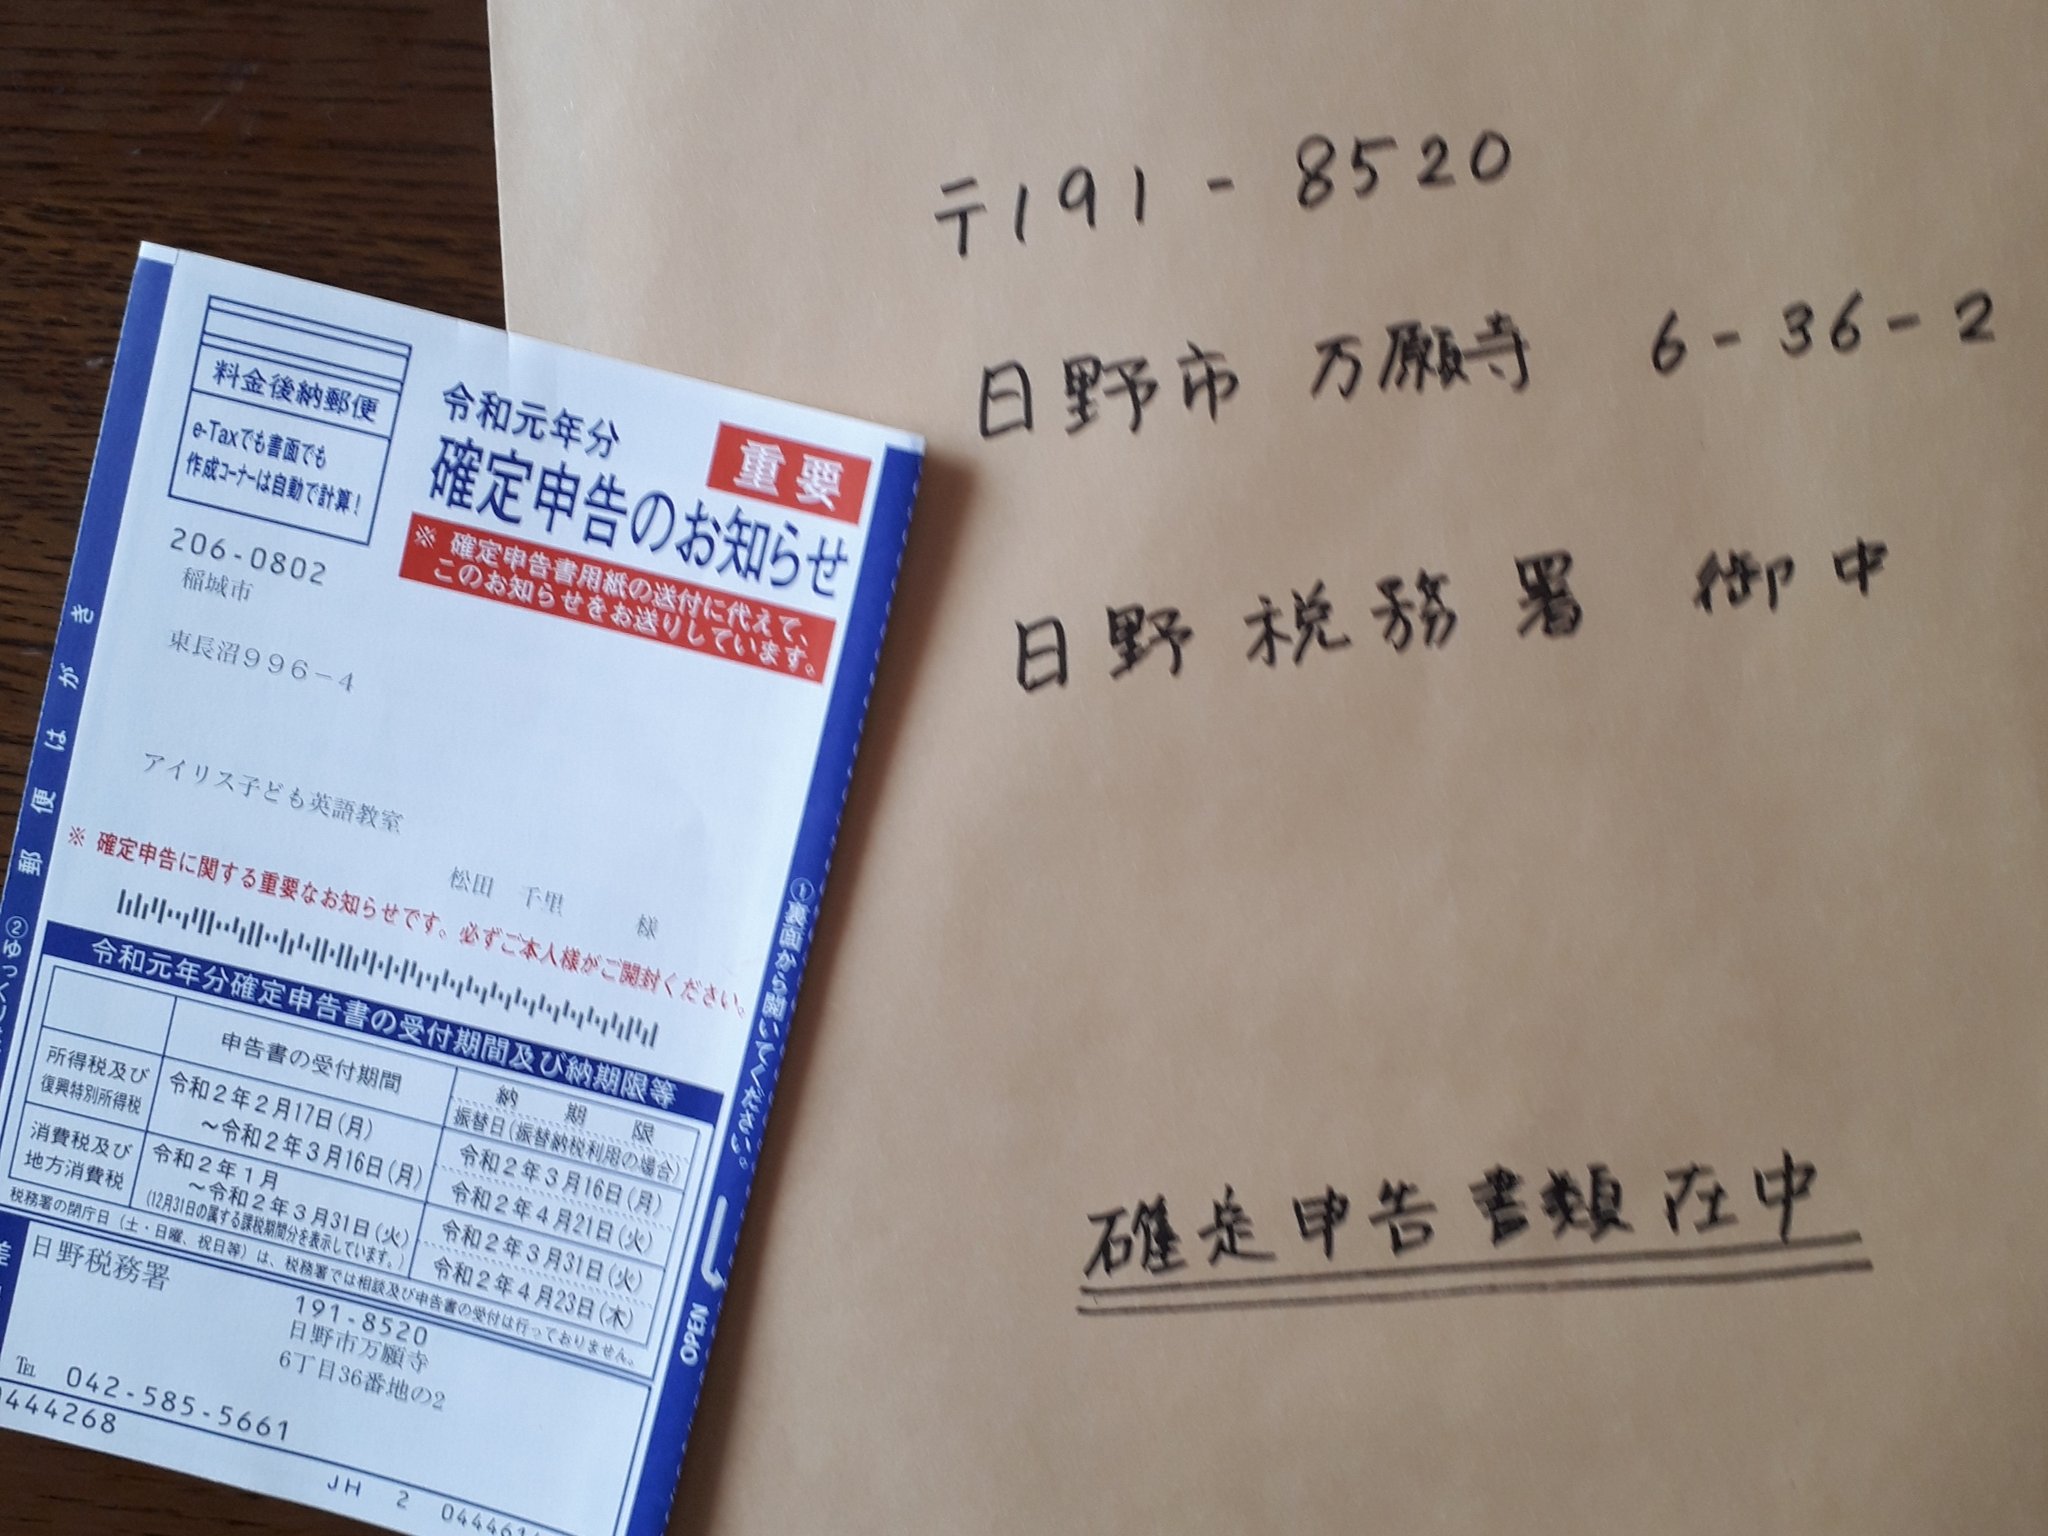 料金後納郵便
e-Taxでも書面でも
作成コーナーは自動で計算!
令和元年分
重要
確定申告のお知らせ
※ 確定申告書用紙の送付に代えて、
このお知らせをお送りしています。
206-0802
稲城市
東長沼996-4
アイリス子ども英語教室
松田 千里 様
※ 確定申告に関する重要なお知らせです。必ずご本人様がご開封ください。
令和元年分確定申告書の受付期間及び納期限等
申告書の受付期間
納期限
振替日(振替納税利用の場合)
所得税及び
復興特別所得税
令和2年2月17日(月)
~令和2年3月16日(月)
令和2年3月16日(月)
令和2年4月21日(火)
消費税及び
地方消費税
令和2年1月
~令和2年3月31日(火)
(12月31日の属する課税期間分を表示しています。)
令和2年3月31日(火)
令和2年4月23日(木)
税務署の閉庁日(土・日曜、祝日等)は、税務署では相談及び申告書の受付は行っておりません。
日野税務署
191-8520
日野市万願寺
6丁目36番地の2
TEL 042-585-5661
444268
JH 2
郵便はがき
①裏面から開いてください。
OPEN
②ゆっくり
〒191-8520
日野市 万願寺 6-36-2
日野税務署 御中
確定申告書類在中